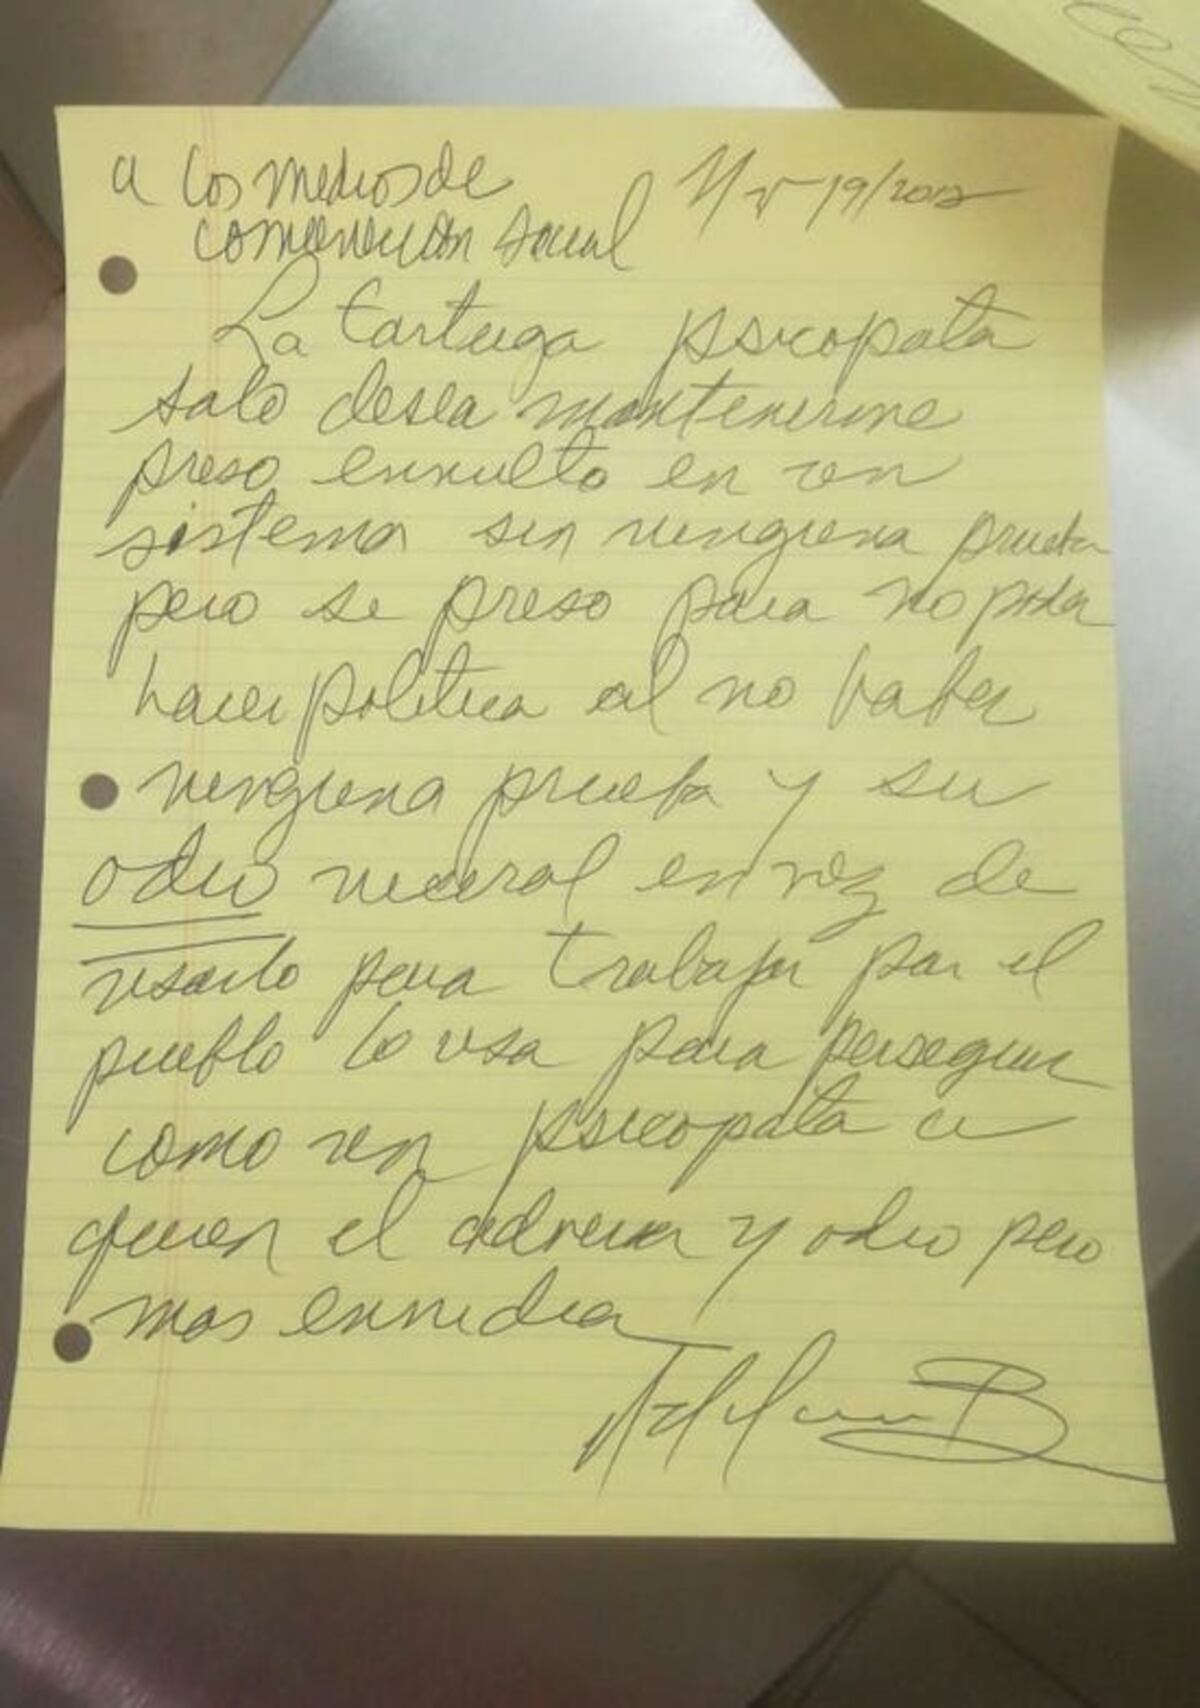 a los medios de
comunicación social
Nov 19/20
La tortuga psicopata
solo desea mantenerme
preso envuelto en un
sistema sin ninguna prueba
pero se preso para no poder
hacer politica al no haber
ninguna prueba y su
odio viceral en vez de
usarlo para trabajar por el
pueblo lo usa para perseguir
como un psicopata a
quien el admira y odio pero
mas envidia